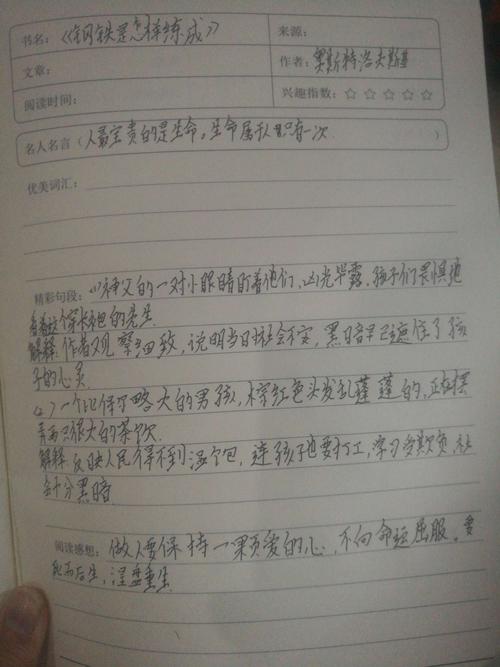 书名：《钢铁是怎样练成》
来源：
文章：
作者：奥斯特洛夫斯基
阅读时间：
兴趣指数：☆ ☆ ☆ ☆ ☆
名人名言（人最宝贵的是生命，生命属于人只有一次 ）
优美词汇：
精彩句段：(1)神父的一对小眼睛盯着他们，凶光毕露，孩子们畏惧地
看着这个穿长袍的先生
解释：作者观察细致，说明当日社会不安，黑暗早已遮住了孩
子的心灵
(2)一个比保尔略大的男孩，棕红色头发乱蓬蓬的，正在摆
弄两只很大的茶炊
解释：反映人民得不到温饱，连孩子也要打工，
会十分黑暗
阅读感想：做人要保持一颗爱的心，不向命运屈服，要
死而后生，涅盘重生